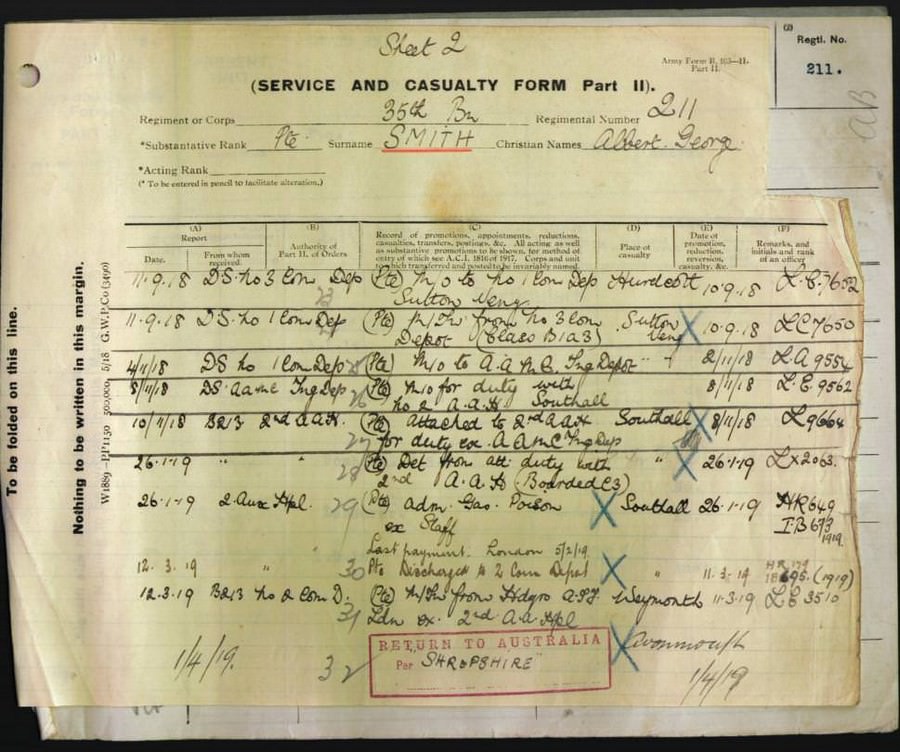 Sheet 2
Army Form B. 103—II.
Part II.
(3)
Regtl. No.
211.
(SERVICE AND CASUALTY FORM Part II).
Regiment or Corps 35th Bn Regimental Number 211
*Substantative Rank Pte Surname SMITH Christian Names Albert George
*Acting Rank
(* To be entered in pencil to facilitate alteration.)
To be folded on this line.
Nothing to be written in this margin.
(A) (B) (C) (D) (E) (F)
Report
Date. From whom received.
Authority of Part II. of Orders
Record of promotions, appointments, reductions, casualties, transfers, postings, &c. All acting as well as substantive promotions to be shown, for method of entry of which see A.C.I. 1816 of 1917. Corps and unit to which transferred and posted to be invariably named.
Place of casualty
Date of promotion, reduction, reversion, casualty, &c.
Remarks, and initials and rank of an officer
11.9.18 DS. No 3 Com Dep (Pte) M/O to No 1 Com Dep Hurdcott 10.9.18 L.E. 7652
23 Sutton Veny
11.9.18 DS. No 1 Com Dep (Pte) M/In from No 3 Com Sutton X 10.9.18 LC 7650
Depot (Class B1a3) Veny
4/11/18 DS No 1 Com Dep (Pte) M/O to A.A.M.C. Tng Depot " 2/11/18 L.A 9554
8/11/18 DS. AAMC Tng Dep (Pte) M/O for duty with 8/11/18 L.E. 9562
26 No 2 A.A.H. Southall
10/11/18 B213 2nd AAH. (Pte) attached to 2nd AAH Southall X 8/11/18 L9664
27 for duty ex. AAMC Tng Dep
26.1.19 " " (Pte) Det from att duty with " X 26.1.19 LX2063.
28 2nd A.A.H (Boarded C3)
26.1.19 2 Aux Hpl. 29 (Pte) adm. Gas. Poison X Southall 26.1.19 HR649
ex Staff IB673
1919.
Last payment. London 5/2/19.
12.3.19 " 30 Pte Discharged to 2 Com Depot X " 11.3.19
(1919)
12.3.19 B213 No 2 Com D. (Pte) M/In from Hdqrs A.I.F. Weymouth 11.3.19 LE 3510
31 Ldn ex. 2nd A.A Hpl
RETURN TO AUSTRALIA X Avonmouth
1/4/19. 32 Per "SHROPSHIRE" 1/4/19